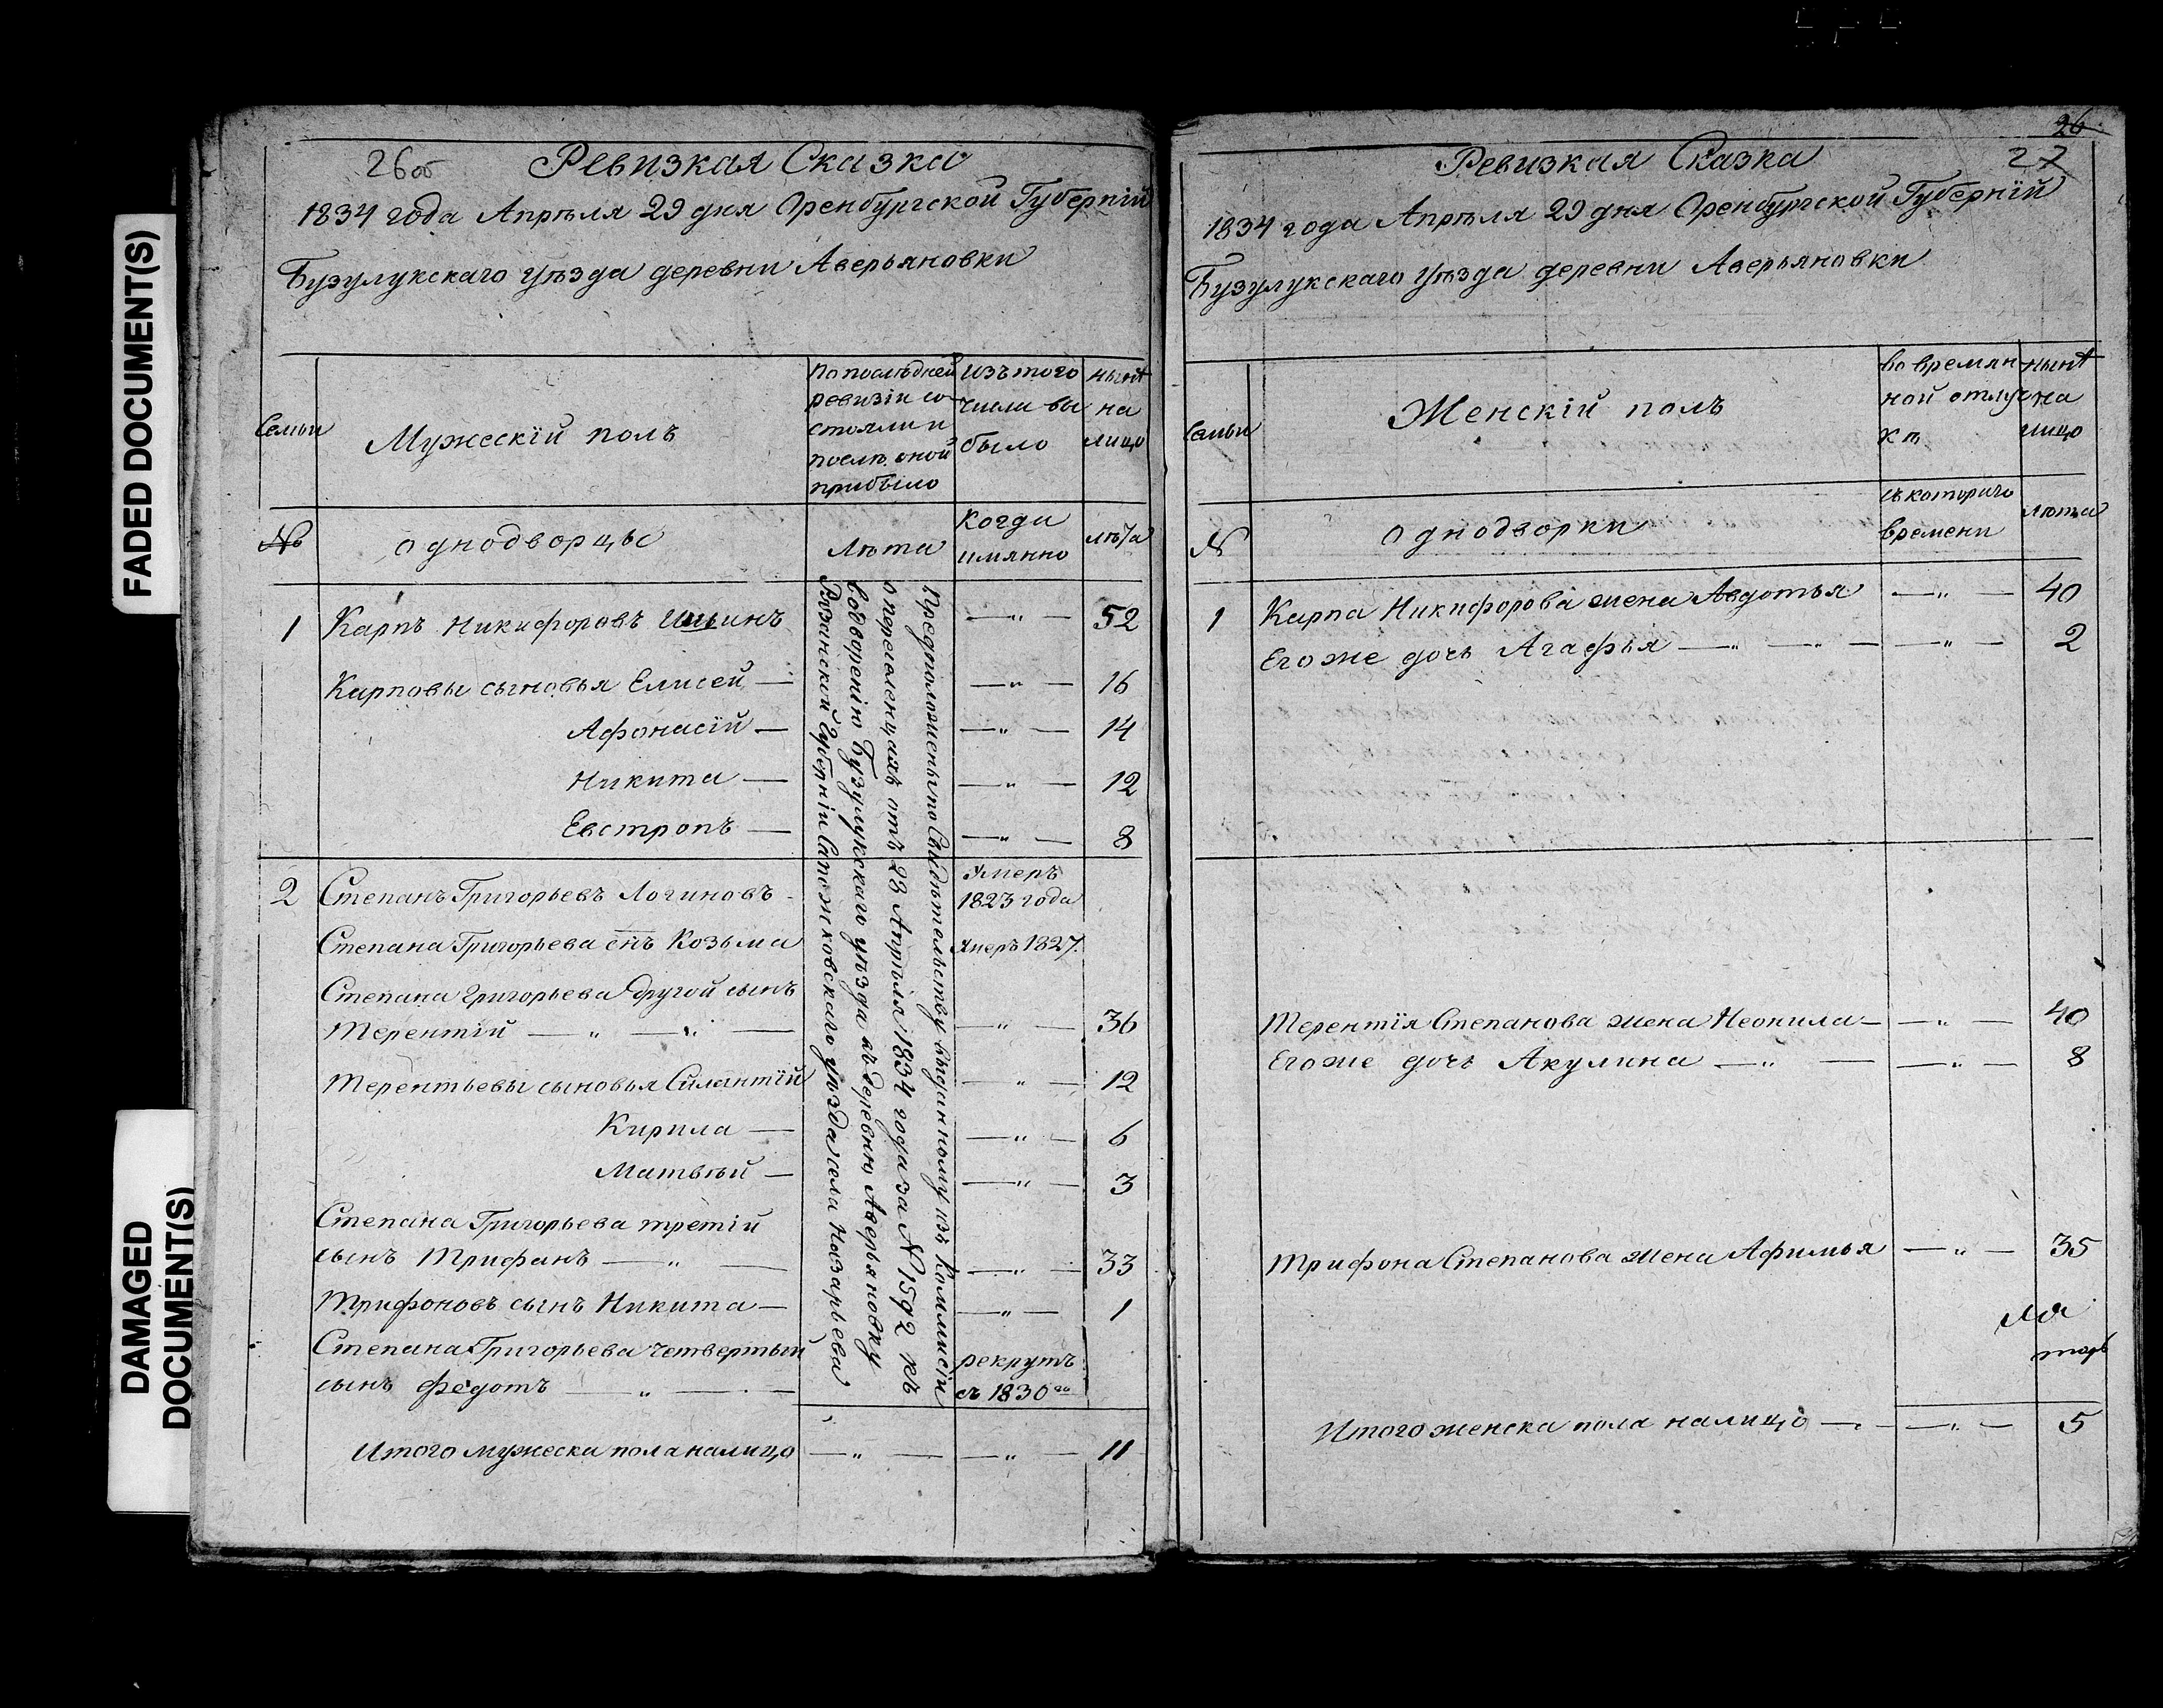 FADED DOCUMENT(S)
DAMAGED
DOCUMENT(S)
26об
Ревизкая Сказка
1834 года Апрѣля 29 дня Оренбургской Губерній
Бузулукскаго уѣзда деревни Аверьяновки
Семьи
Мужескій полъ
По послѣдней
ревизіи со-
стояли и
послѣ оной
прибыло
Изъ того
числа вы
было
нынѣ
на
лицо
№
однодворцы
Лѣта
Когда
имянно
лѣта
1
Карпъ Никифоровъ
— „ —
52
Карповы сыновья Елисей —
— „ —
16
Афонасій —
— „ —
14
Никита —
— „ —
12
Евстропъ —
— „ —
8
2
Степанъ Григорьевъ Логиновъ
Умеръ
1823 года
Степана Григорьева снъ Козьма
Умеръ 1827.
Степана Григорьева другой сынъ
Терентій — „ — „ —
— „ —
36
Терентьевы сыновья Силантій
— „ —
12
Кирила —
— „ —
6
Матвѣй —
— „ —
3
Степана Григорьева третій
сынъ Трифанъ — „ —
— „ —
33
Трифоновъ сынъ Никита —
— „ —
1
Степана Григорьева четвертый
сынъ Федотъ — „ — —
рекрутъ
съ 1830 го
Предположены по Свидѣтельству выданному изъ Коммисіи
о переселенцахъ отъ 23 Апрѣля 1834 года за № 1592 къ
водворенію Бузулукскаго уѣзда въ деревню Аверьяновку
Рязанской Губерніи Сапожковскаго уѣзда села Назарьева
Итого мужеска пола налицо
— „ —
— „ —
11
26
27
Ревизкая Сказка
1834 года Апрѣля 29 дня Оренбургской Губерній
Бузулукскаго уѣзда деревни Аверьяновки
Семьи
Женскій полъ
во времян
ной отлуч
кѣ
нынѣ
на
лицо
№
однодворки
съ котораго
времени
лѣта
1
Карпа Никифорова жена Авдотья
— „ —
40
Его же дочь Агафья — „ — „ —
— „ —
2
Терентія Степанова жена Неонила —
— „ —
40
Его же дочь Акулина — „ —
— „ —
8
Трифона Степанова жена Афимья
— „ —
35
Итого женска пола налицо —
— „ —
5